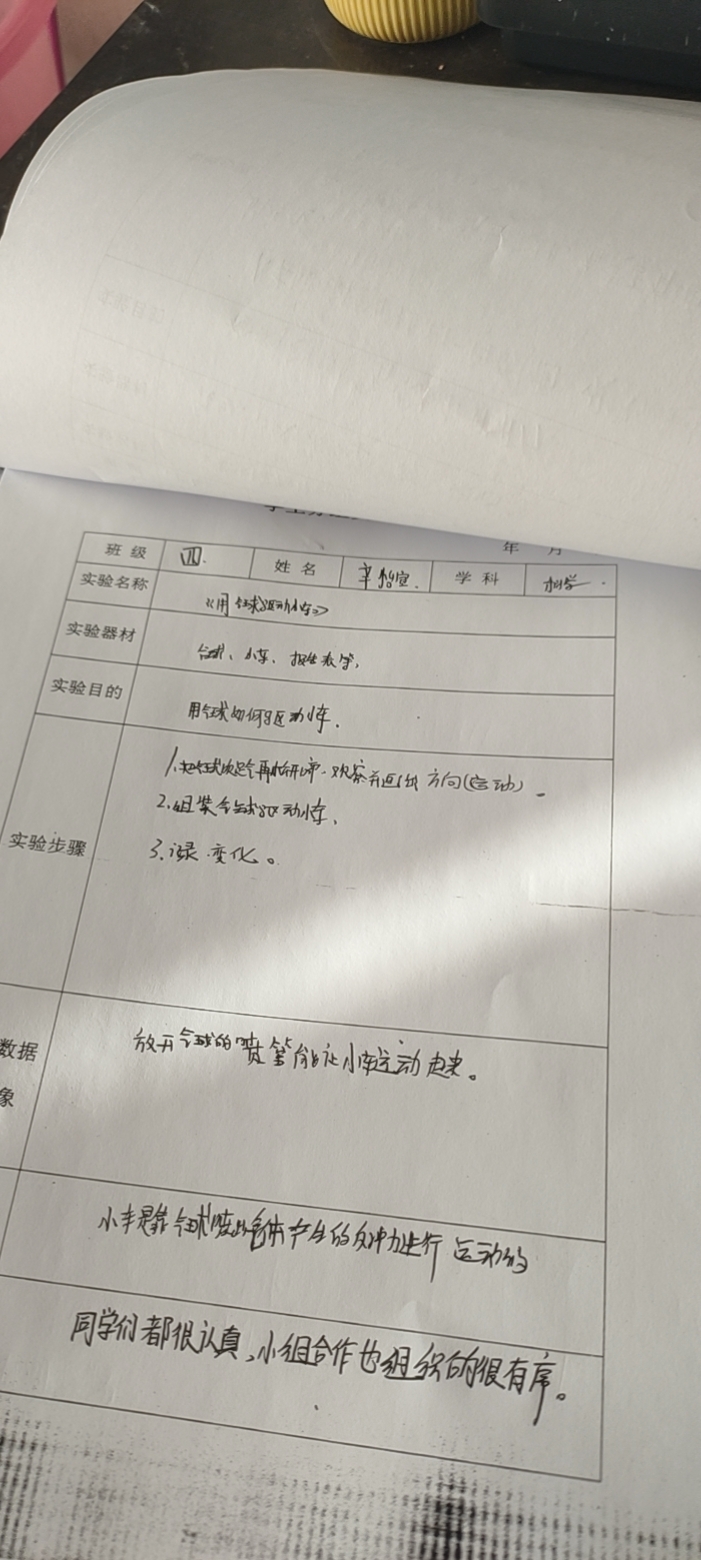 年 月
班 级 四. 姓 名 辛怡宣. 学 科 科学.
实验名称 《用气球驱动小车》
实验器材 气球、小车、
实验目的 用气球如何驱动小车.
实验步骤
1.把气球吹足气再松开
方向(运动)。
2.组装气球驱动小车.
3.记录 变化。
数据
象
放开气球的喷管能让小车运动起来。
小车是靠气球喷出气体产生的反冲力进行 运动的
同学们都很认真,小组合作也组织的很有序。